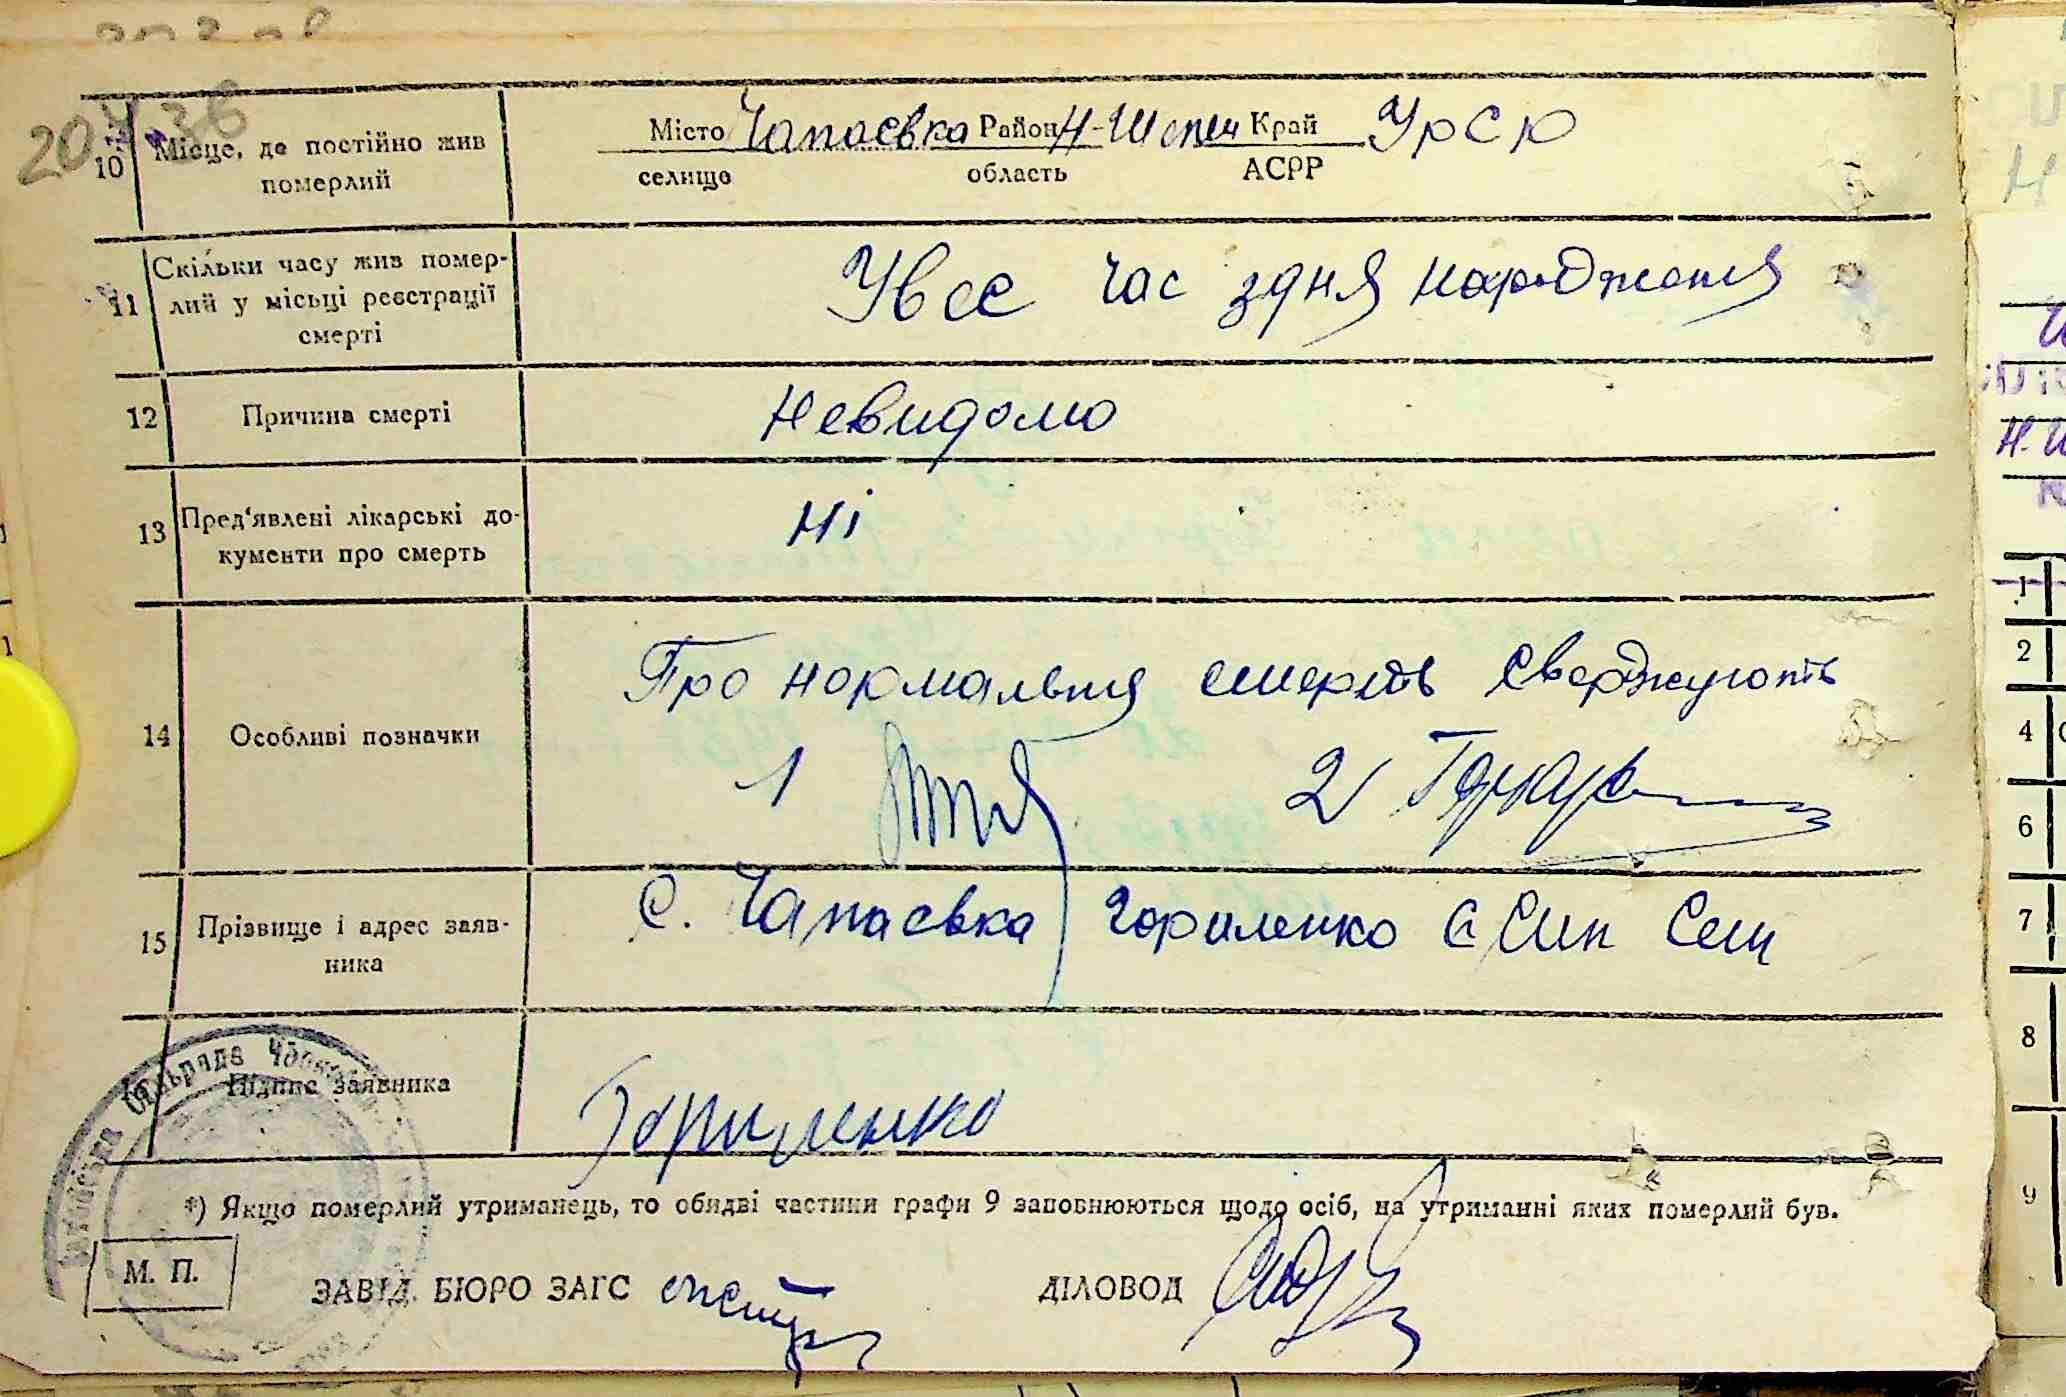 10 Місце, де постійно жив померлий
Місто Чапаєвка Район Н-Шепеч Край УрСР
селище область АСРР
11 Скільки часу жив помер-
лий у місьці реєстрації
смерті
Увес час здня народженя
12 Причина смерті
Невидомо
13 Пред'явлені лікарські до-
кументи про смерть
Ні
14 Особливі позначки
Про нормальня смерть сверджують
1 2
15 Прізвище і адрес заяв-
ника
С. Чапаєвка Гориленко Є Син
Підпис заявника
Гориленко
*) Якщо померлий утриманець, то обидві частини графи 9 заповнюються щодо осіб, на утриманні яких померлий був.
М. П.
ЗАВІД. БЮРО ЗАГС ДІЛОВОД
1
2
4
6
7
8
9